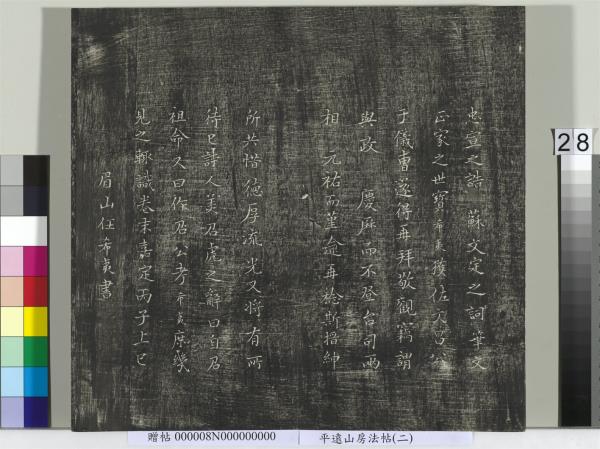 忠宣之誥 蘇文定之詞筆文
正家之世寶希夷獲佐天官公
于儀曹遂得再拜敬觀竊謂
與政 慶曆而不登台司兩
相 元祐而堇踰再稔斯搢紳
所共惜德厚流光又將有所
待已詩人美召虎之辭曰自召
祖命又曰作召公考希夷庶幾
見之輙識卷末嘉定丙子上巳
眉山任希夷書
28
贈帖 000008N000000000 平遠山房法帖(二)